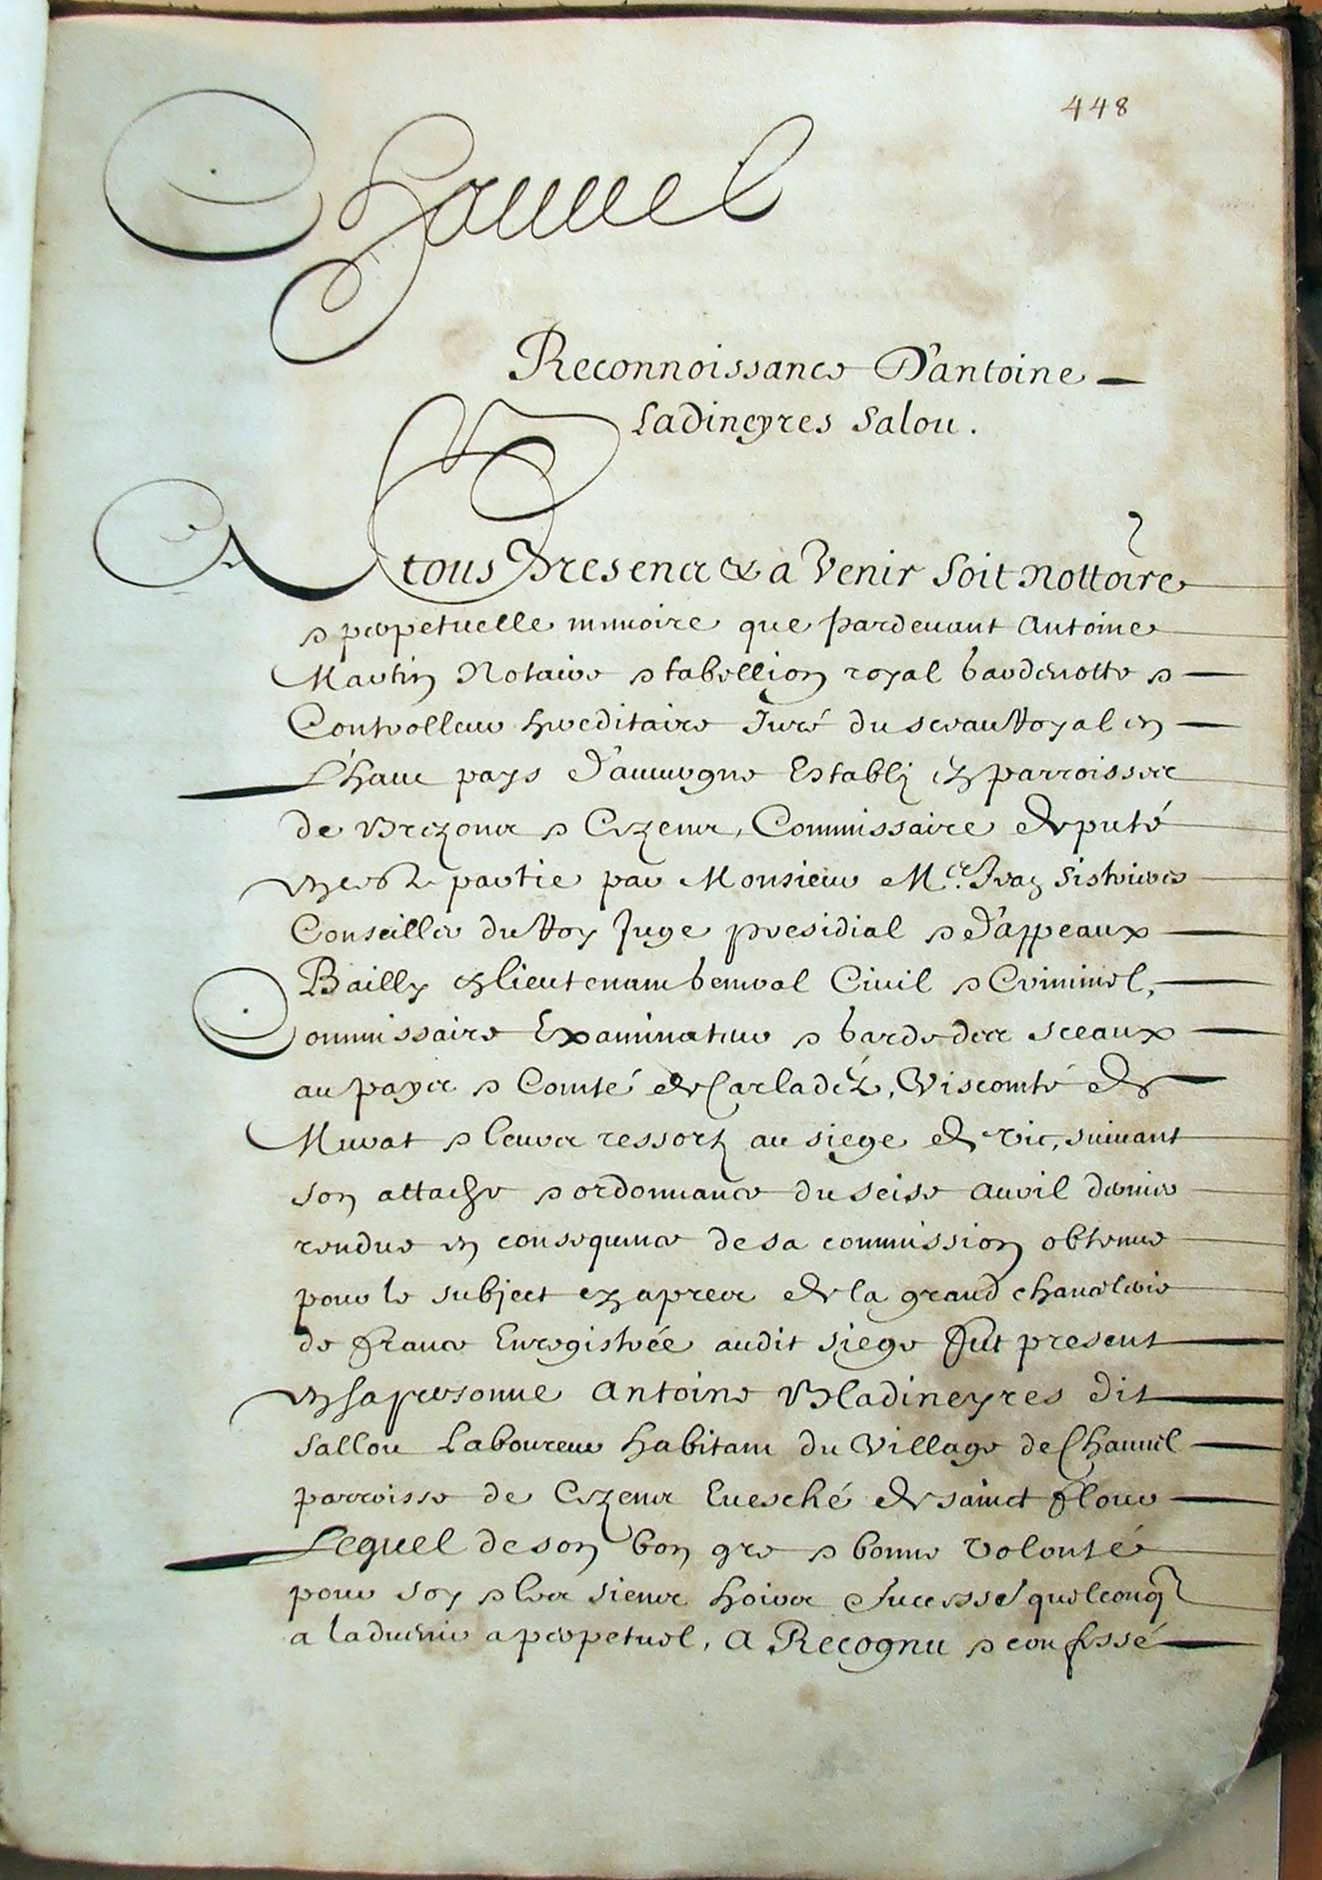 448
Chauuel
Reconnoissance D'antoine
Ladineyres Salou.
A tous Presens & a Venir Soit Nottoire
& perpetuelle memoire que pardeuant Antoine
Martin Notaire & tabellion royal gardenotte &
Controlleur hereditaire Juré du sceau Royal en
L'haut pays D'auuergne Estably es parroisses
de Brezons & Cezens, Commissaire deputé
en ceste partie par Monsieur Me. Jean Sistrieres
Conseiller du Roy Juge presidial & D'appeaux
Bailly & lieutenant general Ciuil & Criminel,
Commissaire Examinateur & garde des sceaux
au payes & Comté de Carladéz, Viscomté de
Murat & leurs ressortz au siege de vic, suiuant
son attache & ordonnance du seise Auril dernier
rendue en consequence de sa commission obtenue
pour le subject cy apres de la grand chancelerie
de france Enregistrée audit siege fut present
en sa personne Antoine Ladineyres dit
Sallou Laboureur habitant du Village de Chauuel
parroisse de Cezens Euesché de sainct flour
Lequel de son bon gre & bonne volonté
pour soy & les siens hoirs & sucesse quelconq
a laduenir a perpetuel, A Recognu & confessé